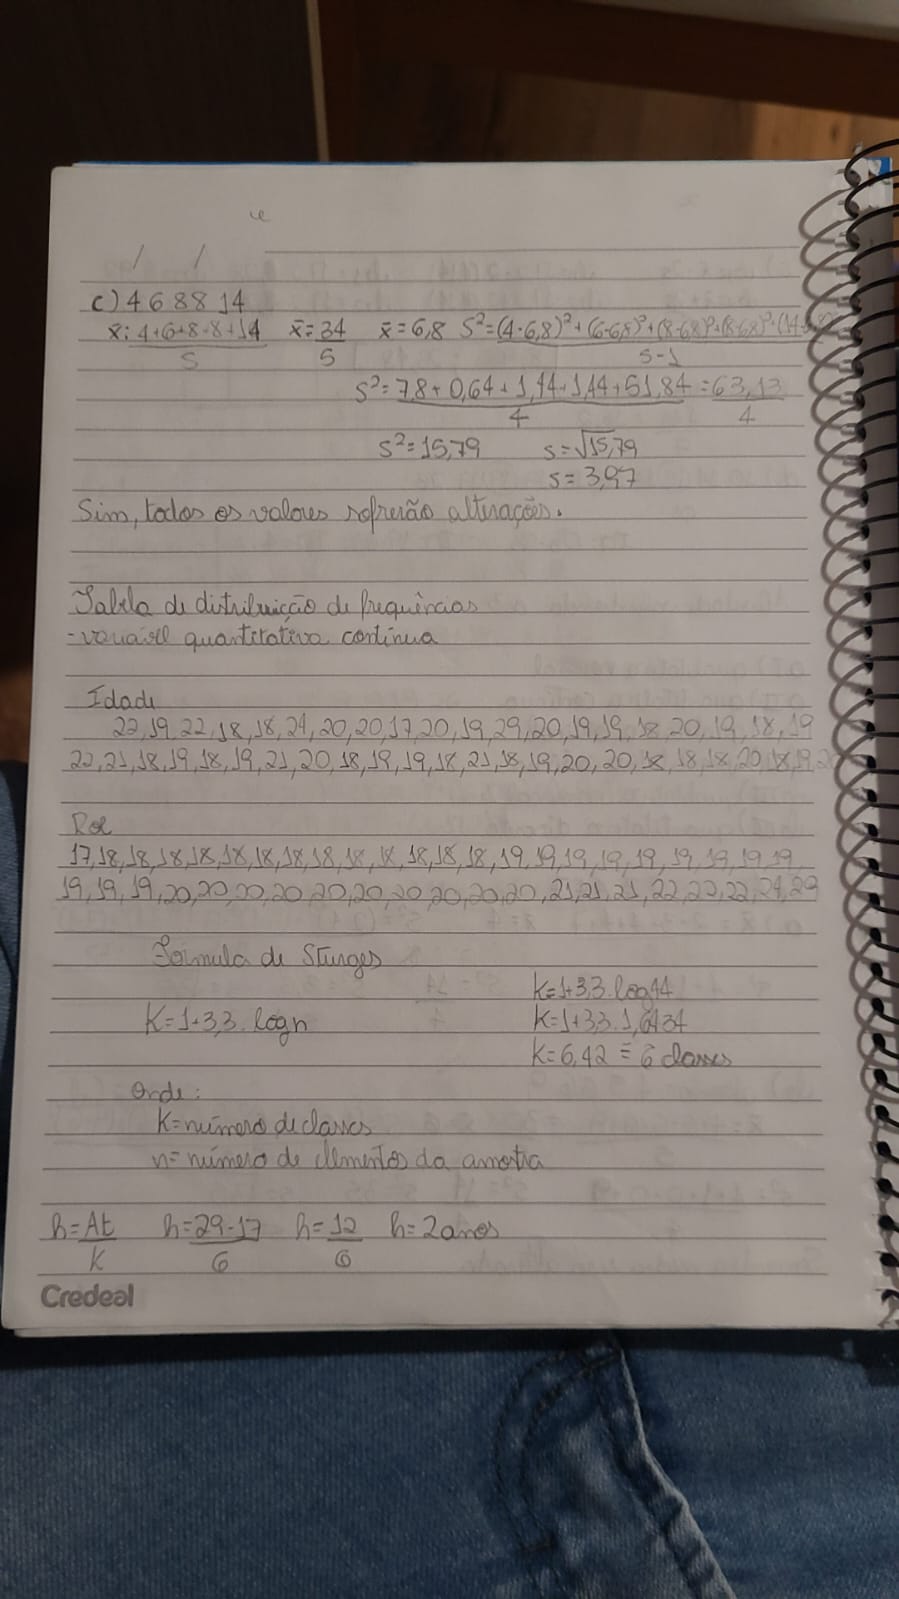 c) 4 6 8 8 14
x̄: 4+6+8+8+14/5 x̄=34/5 x̄=6,8 S²=(4-6,8)²+(6-6,8)²+(8-6,8)²+(8-6,8)²+(14-6,8)²/5-1
S²=7,8+0,64+1,44+1,44+51,84/4=63,13/4
S²=15,79 s=√15,79
s=3,97
Sim, todos os valores sofrerão alterações.
Tabela de distribuicção de frequências
-variável quantitativa contínua
Idade
22,19,22,18,18,24,20,20,17,20,19,29,20,19,19,18,20,19,18,19
22,21,18,19,18,19,21,20,18,19,19,18,21,18,19,20,20,18,18,18,20,18,19,20
Rol
17,18,18,18,18,18,18,18,18,18,18,18,18,18,19,19,19,19,19,19,19,19,19
19,19,19,20,20,20,20,20,20,20,20,20,20,21,21,21,22,22,22,24,29
Fórmula de Sturges
K=1+3,3.log44
K=1+3,3.logn K=1+3,3.1,6434
K=6,42 = 6 classes
Onde:
K=número de classes
n=número de elementos da amostra
h=At/K h=29-17/6 h=12/6 h=2anos
Credeal